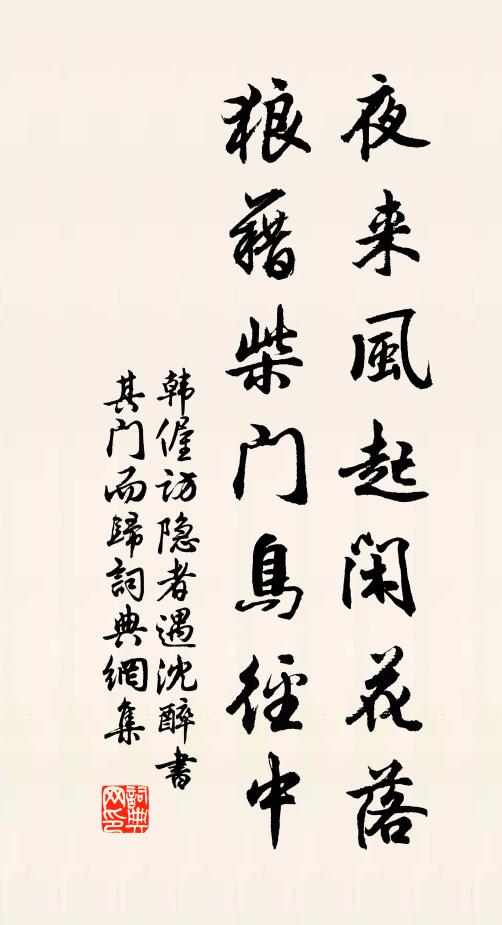 夜来風起閑花落
狼藉柴门鳥徑中
韩偓访隐者遇沈醉書
其门而歸詞典網集
詞典
网印